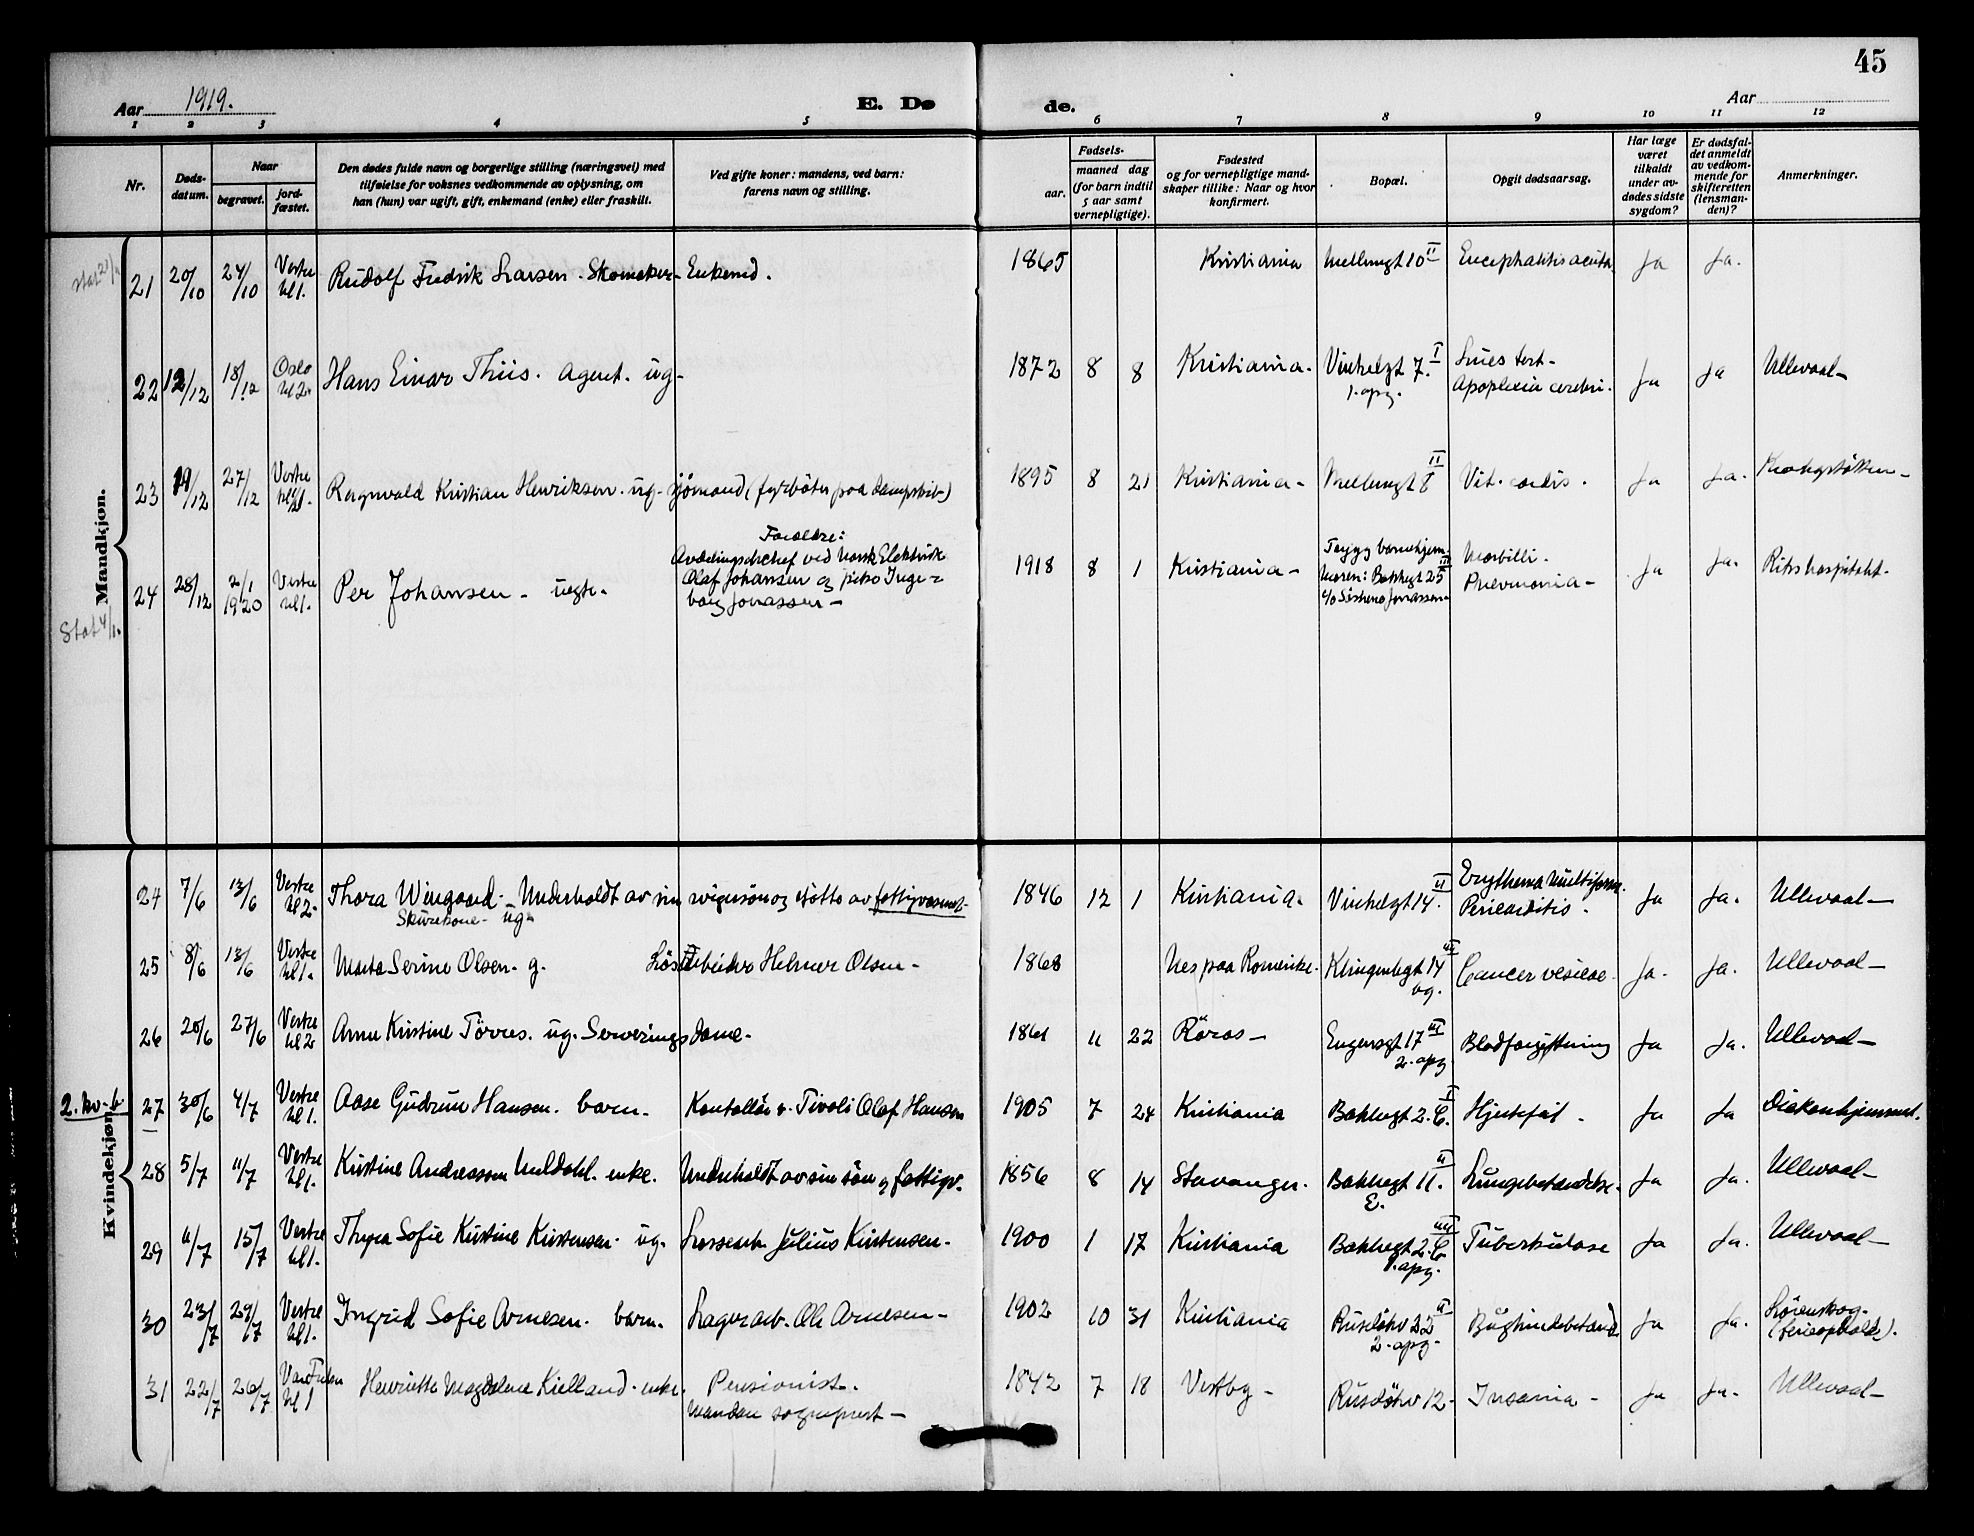 45
Aar 1919.
E. Dø
de.
Aar
1 2 3 4 5 6 7 8 9 10 11 12
Nr.
Døds-
datum.
Naar
begravet.
jord-
fæstet.
Den dødes fulde navn og borgerlige stilling (næringsvei) med
tilføielse for voksnes vedkommende av oplysning, om
han (hun) var ugift, gift, enkemand (enke) eller fraskilt.
Ved gifte koner: mandens, ved barn:
farens navn og stilling.
Fødsels-
aar.
maaned dag
(for barn indtil
5 aar samt
vernepligtige).
Fødested
og for vernepligtige mand-
skaper tillike: Naar og hvor
konfirmert.
Bopæl.
Opgit dødsaarsag.
Har læge
været
tilkaldt
under av-
dødes sidste
sygdom?
Er dødsfal-
det anmeldt
av vedkom-
mende for
skifteretten
(lensman-
den)?
Anmerkninger.
Mandkjøn.
21 20/10 24/10 Vestre kl 1. Rudolf Fredrik Larsen. Skomaker- Enkemd. 1865 Kristiania 10 II Encephalitis acuta Ja Ja.
22 12/12 18/12 Oslo kl 2. Hans Einar Thiis. Agent. ug- 1872 8 8 Kristiania. Vinkelgt 7. I Lues tert-
1. apg. Apoplexia cerebri. Ja Ja Ullevaal-
23 19/12 27/12 Vestre Ragnvald Kristian Henriksen. ug- sjømand (fyrbøter paa dampskib-) 1895 8 21 Kristiania- II Vit. cordis. Ja Ja. Krohgstøtten-
Forældre:
Avdelingschef ved Norsk Elektrisk
24 28/12 2/1 1920 Vestre kl 1. Per Johansen- uegte. Olaf Johansen og Inge-
borg Jonassen- 1918 8 1 Kristiania- barnehjem.
Moren: Bakkegt 25 III
c/o Jonassen- Morbilli.
Pneumonia- Ja Ja. Rikshospitalet.
Stat 4/1.
Kvindekjøn.
24 7/6 13/6 Vestre kl 2- Thora Wingaard- Underholdt av sin svigersøn og støtte av fattigvæsenet-
Skurekone- ug- 1846 12 1 Kristiania. Vinkelgt 14. II Erythema multiforme.
Pericarditis. Ja Ja. Ullevaal-
25 8/6 13/6 Vestre kl 1. Marta Serine Olsen. g. Løsarbeider Helmer Olsen- 1868 Nes paa Romerike. Klingenbgt 14 III
og. Cancer vesicae. Ja. Ja. Ullevaal-
26 20/6 27/6 Vestre kl 2 Anne Kristine Törres. ug. Serveringsdame- 1861 11 22 Röros- Engensgt 17 III
2. apg. Blodforgiftning Ja Ja. Ullevaal-
2. kv-b
27 30/6 4/7 Vestre kl 1. Aase Gudrun Hansen. barn- Kontollör v. Tivoli Olaf Hansen 1905 7 24 Kristiania Bakkegt 2. C. I Hjertefeil. Ja Ja Diakonhjemmet.
28 5/7 11/7 Vestre kl 1. Kristine Andreassen Muldahl. enke. Underholdt av sin søn og fattigv. 1856 8 14 Stavanger. Bakkegt 11. II
E. Lungebetændelse. Ja Ja. Ullevaal-
29 11/7 15/7 Vestre kl 1. Thyra Sofie Kristine Kristensen. ug. Lossearb. Julius Kristensen. 1900 1 17 Kristiania Bakkegt 2. C III
1. apg. Tuberkulose Ja Ja. Ullevaal-
30 23/7 29/7 Vestre kl 1. Ingrid Sofie Arnesen. barn. Lagerarb. Ole Arnesen- 1902 10 31 Kristiania Rusløkv 22 II
2. apg- Bughindebetænd. Ja Ja. Lørenskog-
(ferieophold).
31 22/7 26/7 Vor Frelser kl 1 Henriette Magdalene Kielland. enke. Pensionist.
Manden sogneprest- 1842 7 18 Vestby- Rusløkv 12. Insania- Ja Ja- Ullevaal-